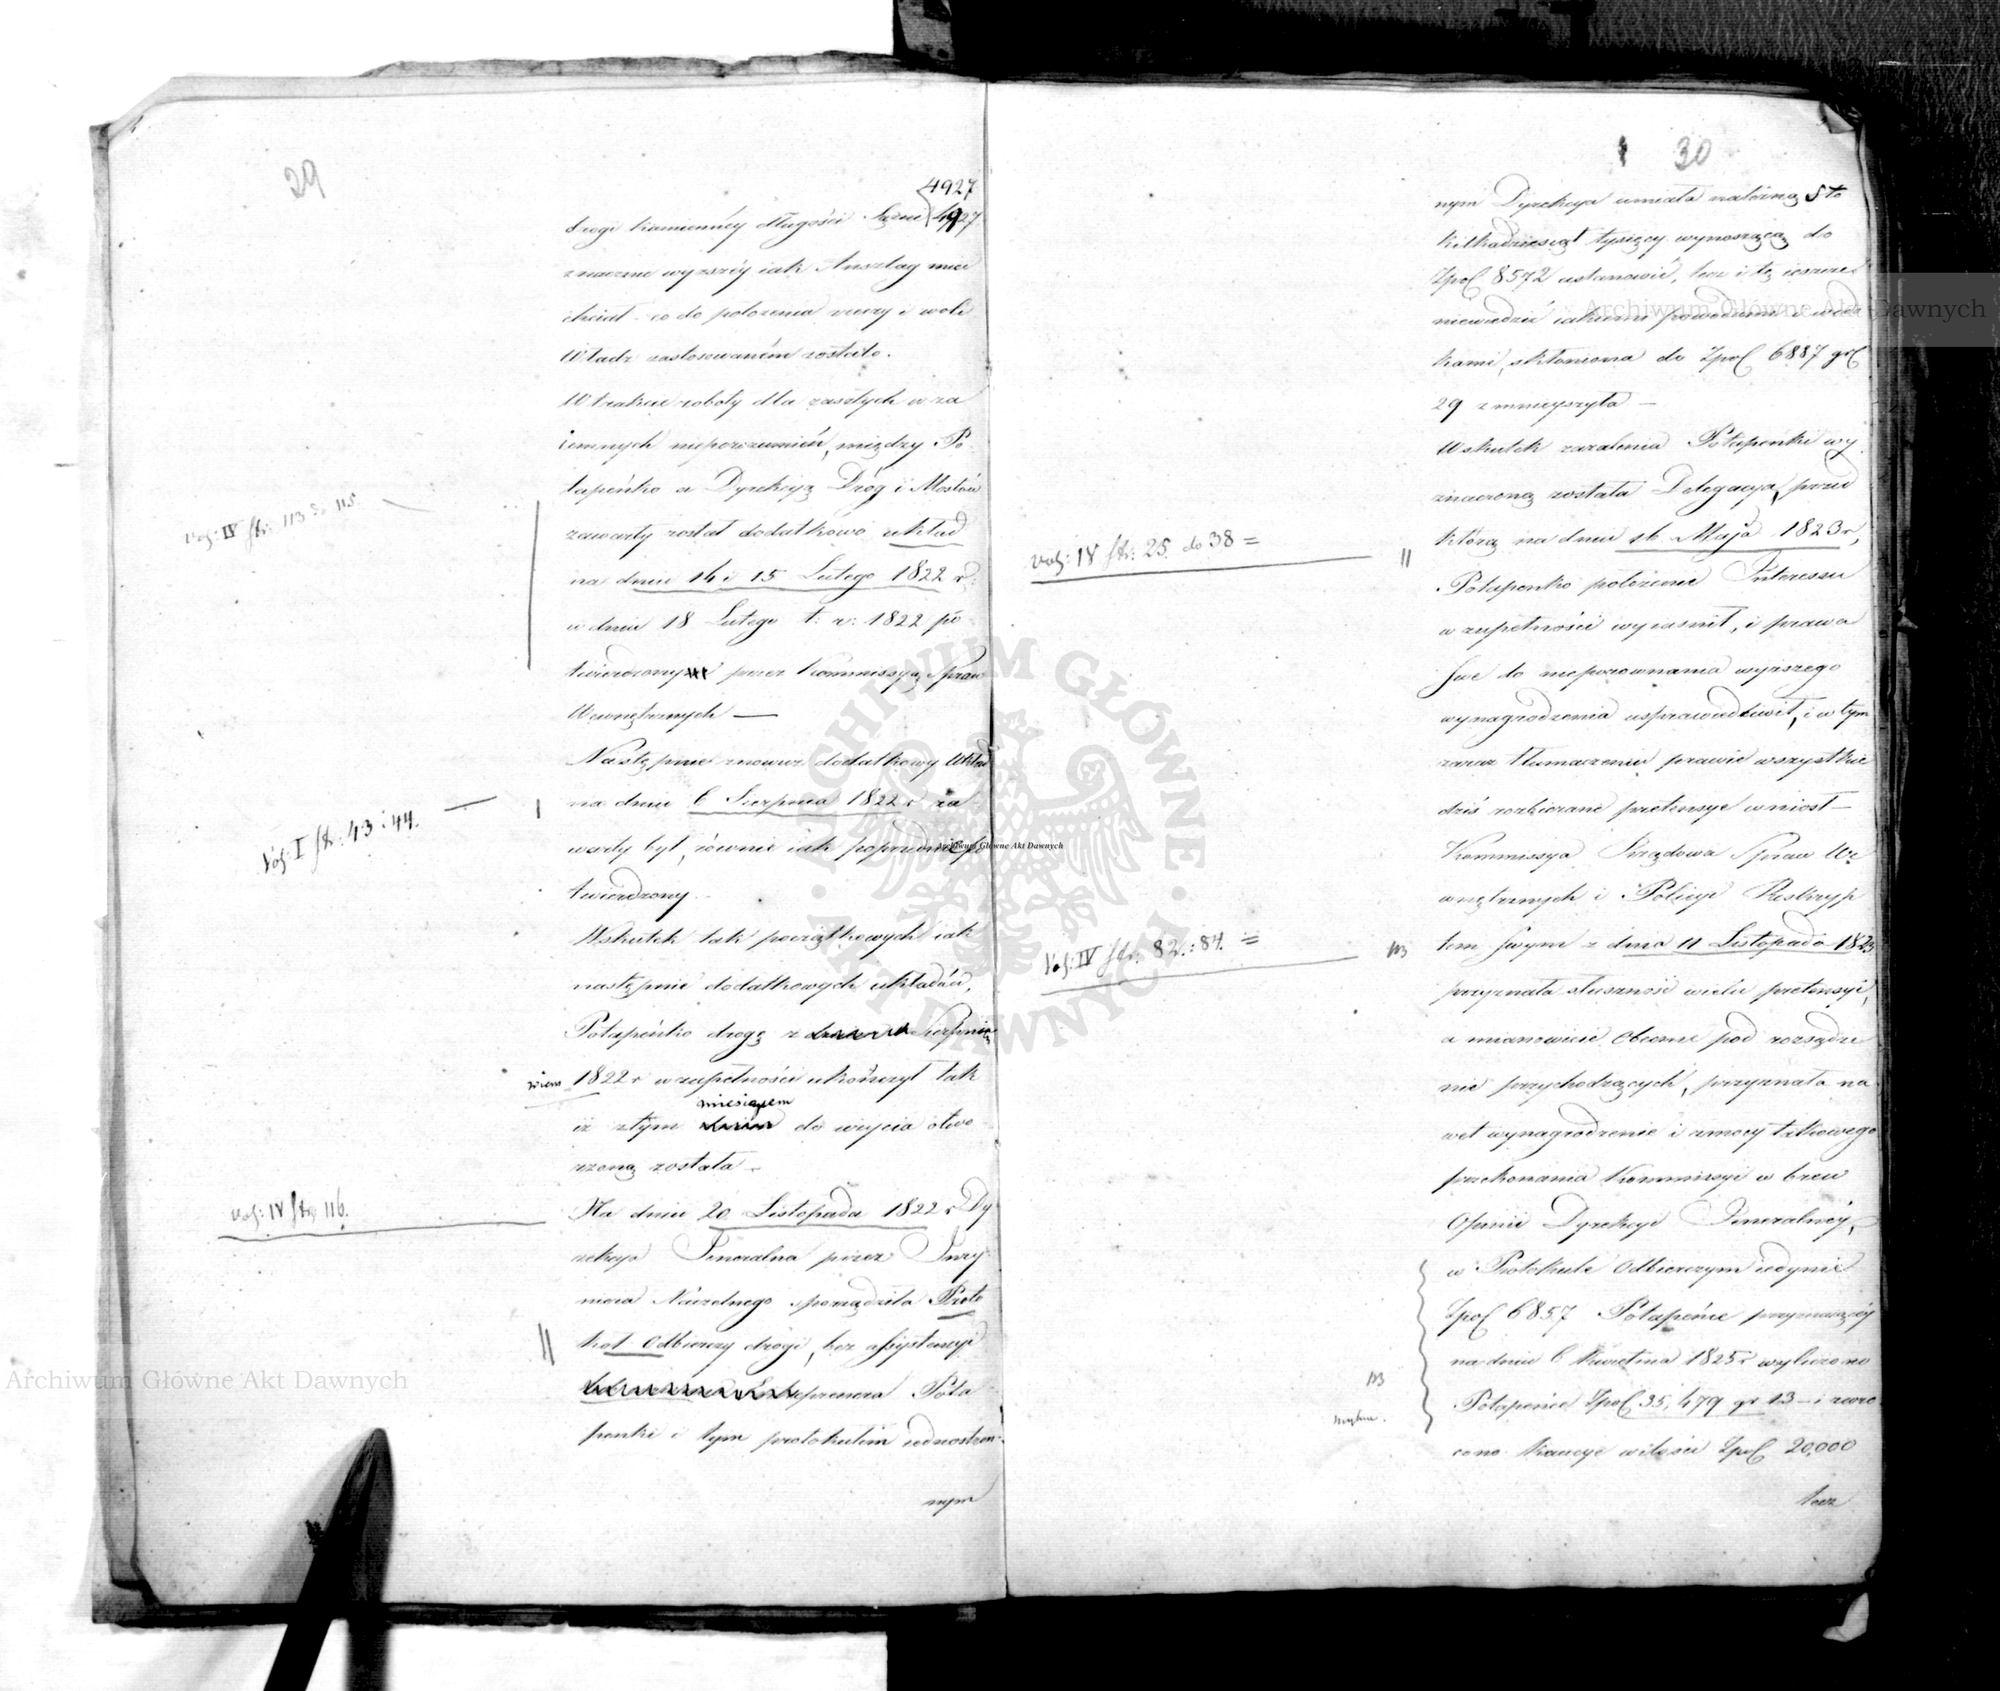 29
4927
drogi kamiennéy długości Sążni 4927
znacznie wyższéy iak Anszlag mieć
chciał co do położenia rzeczy i woli
Władz zastosowaném zostało.
W trakcie roboty dla zaszłych wza
iemnych nieporozumień, między Po
tapeńko a Dyrekcyą Dróg i Mostów
Vol: IV str: 113 do 115
zawarty został dodatkowo układ
na dniu 14 i 15 Lutego 1822 r:
w dniu 18 Lutego t: r: 1822 po
twierdzony przez Kommissyą Spraw
Wewnętrznych —
Następnie znowu dodatkowy Układ
Vol: I str: 43 i 44.
na dniu 6 Sierpnia 1822 r za
warty był, równie iak poprzednie po
twierdzony.
Wskutek tak początkowych iak
następnie dodatkowych układów,
Potapeńko drogę z Sierpnia
1822 r w zupełności ukończył tak
miesiącem
iż z tym do użycia otwo
rzoną została —
Vol: IV str. 116.
Na dniu 20 Listopada 1822 r Dy
rekcya Jeneralna przez Inży
niera Naczelnego sporządziła Proto
kół Odbiorczy drogi, bez assystencyi
Entreprenera Pota
penki i tym protokułem iednostron
nym
30
nym Dyrekcya umiała należną Sto
kilkadziesiąt tysięcy wynoszącą do
Zpol 8572 ustanowić, lecz i tę ieszcze
niewiedzieć iakiemi powodami
kami, skłoniona do Zpol 6887 gr
29 zmnieyszyła —
Wskutek zażalenia Potapenki wy
znaczoną została Delegacya, przed
Vol: IV str: 25 do 38 =
którą na dniu 16 Maja 1823 r,
Potapenko położenie Interessu
w zupełności wyiasnił, i prawa
swe do nieporównania wyższego
wynagrodzenia usprawiedliwił, i w tym
zaraz tłumaczeniu prawie wszystkie
dziś rozbierane pretensye wniosł —
Kommissya Rządowa Spraw We
wnętrznych i Policyi Reskryp
Vol: IV str. 82: 84. =
NB
tem swym z dnia 11 Listopada 1823
przyznała słuszność wielu pretensyi,
a mianowicie Obecnie pod rozsądze
nie przychodzących, przyznała na
wet wynagrodzenie i z mocy takowego
przekonania Kommissyi w brew
Opinii Dyrekcyi Jeneralnéy,
w Protokule Odbiorczym iedynie
Zpol 6857 Potapeńce przyznaiącéy
na dniu 6 Kwietnia 1825 r wyliczono
NB
Potapeńce Zpol 35,479 gr 13 — i zwró
cono Kaucye w ilości Zpol 20,000
lecz
Archiwum Główne Akt Dawnych
Archiwum Główne Akt Dawnych
Archiwum Główne Akt Dawnych
ARCHIWUM GŁÓWNE AKT DAWNYCH